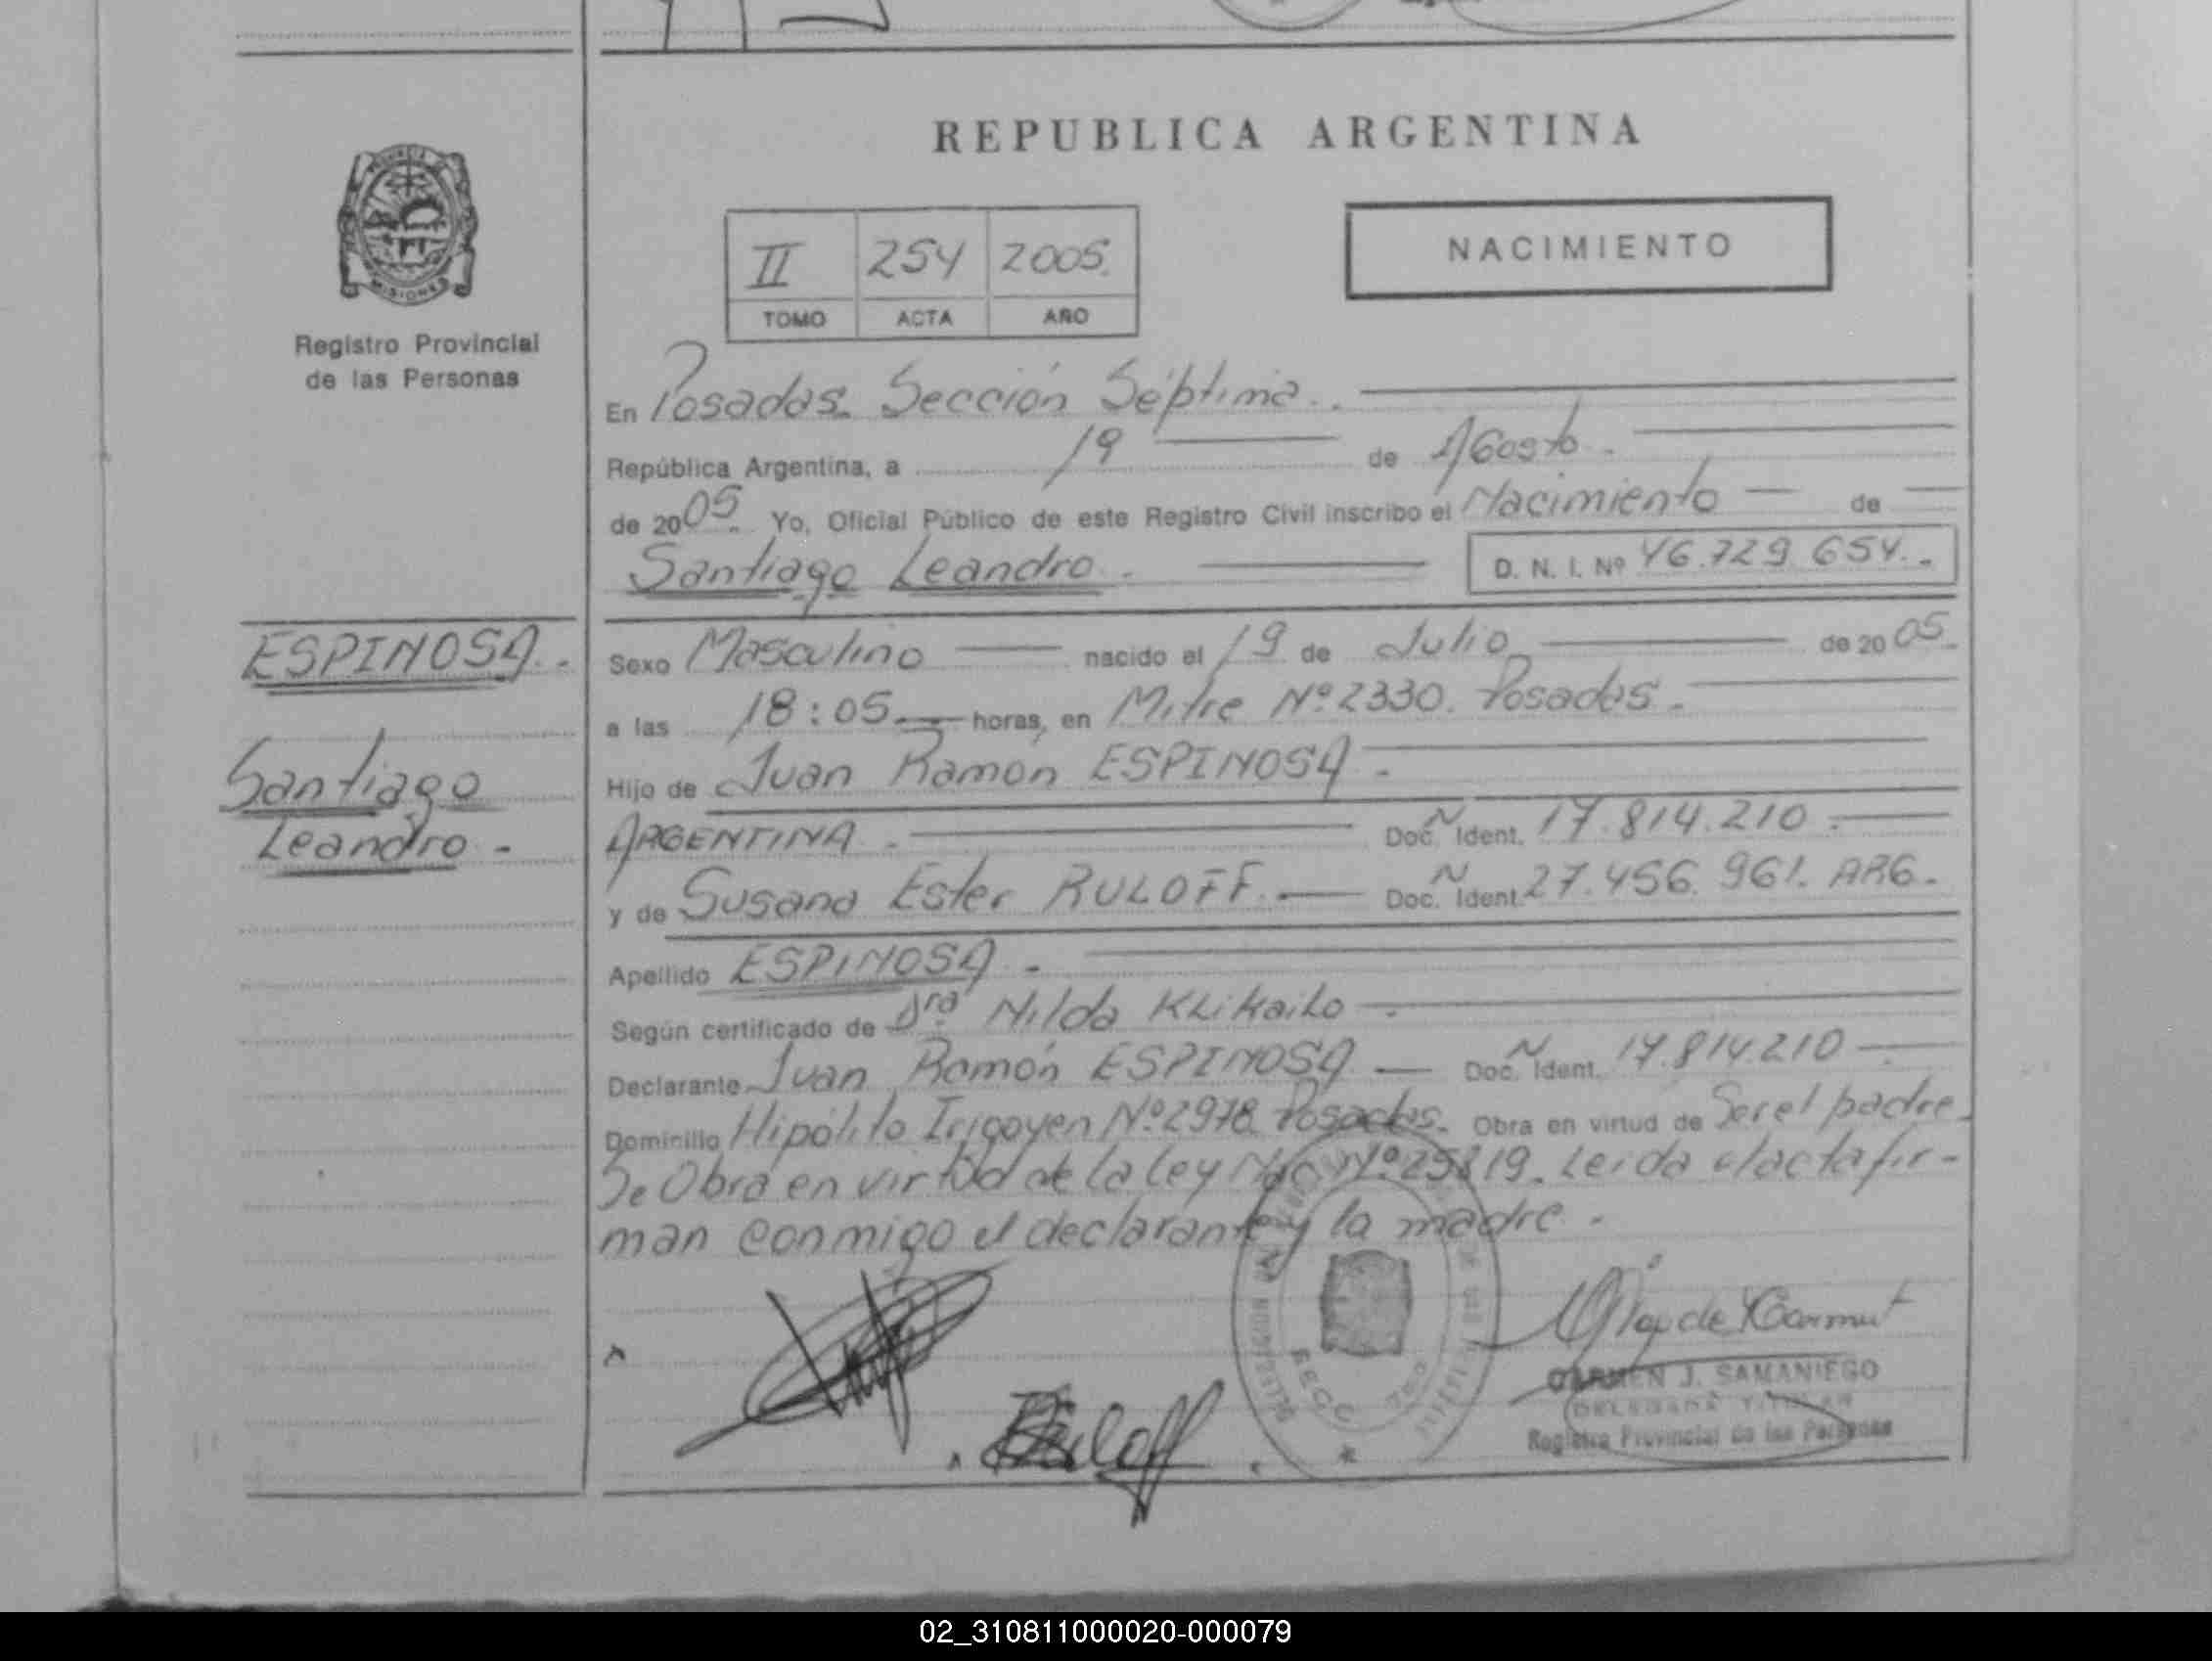 REPUBLICA ARGENTINA
PROVINCIA DE MISIONES
Registro Provincial
de las Personas
II 254 2005.
TOMO ACTA AÑO
NACIMIENTO
En Posadas. Sección Séptima.
República Argentina, a 19 de Agosto.
de 2005. Yo, Oficial Público de este Registro Civil inscribo el Nacimiento de
Santiago Leandro. D. N. I. Nº 46.729.654.
ESPINOSA.
Santiago
Leandro.
Sexo Masculino nacido el 19 de Julio de 2005.
a las 18:05. horas, en Mitre Nº 2330. Posadas.
Hijo de Juan Ramón ESPINOSA.
ARGENTINA. Doc. N Ident. 17.814.210.
y de Susana Ester RULOFF. Doc. N Ident. 27.456.961. ARG.
Apellido ESPINOSA.
Según certificado de Dra Nilda Klikailo.
Declarante Juan Ramón ESPINOSA Doc. N Ident. 17.814.210
Domicilio Hipólito Irigoyen Nº 2978. Posadas. Obra en virtud de Ser el padre.
Se Obra en virtud de la Ley Nac. Nº 25819. Leida el acta fir-
man conmigo el declarante y la madre.
Ruloff
CARMEN J. SAMANIEGO
DELEGADA TITULAR
Registro Provincial de las Personas
02_310811000020-000079